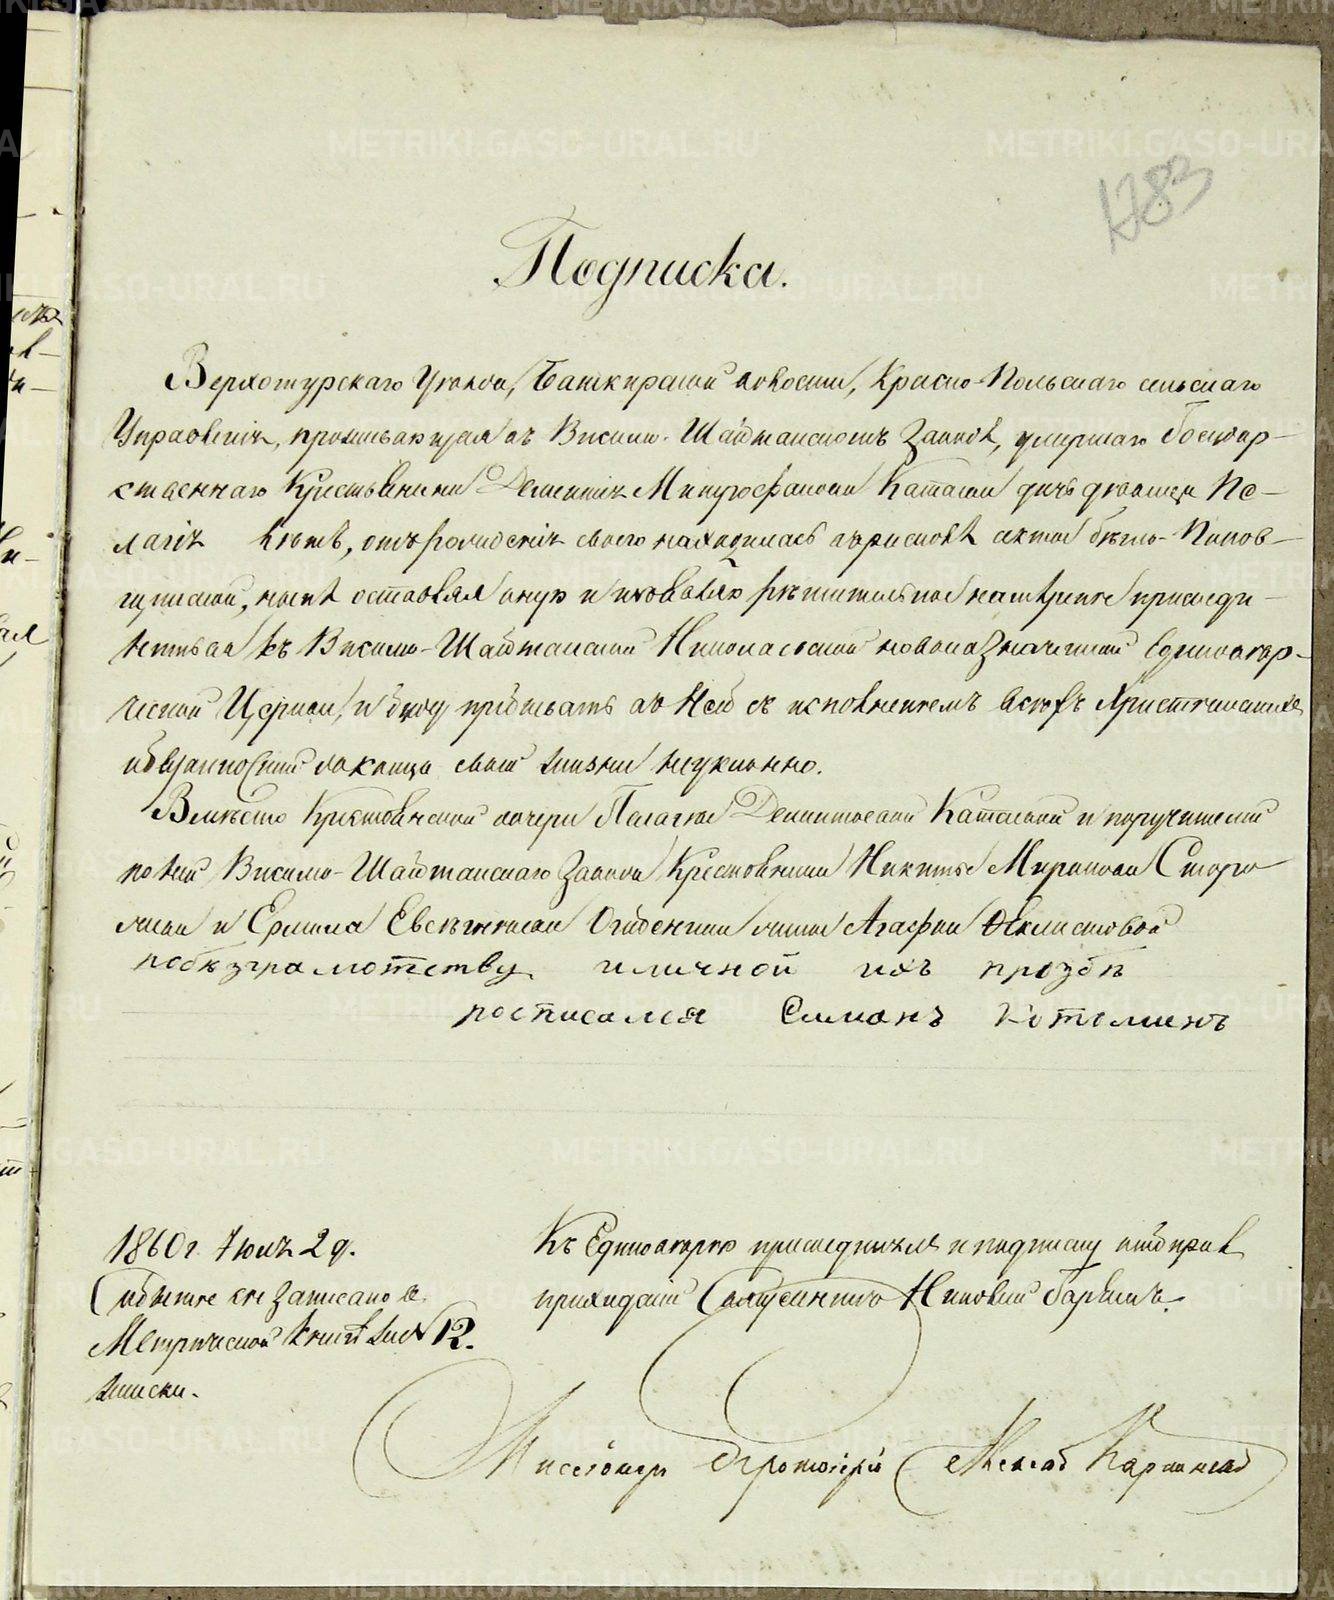 1783
Подписка.
Верхотурскаго Уѣзда, Башкирской волости, Красно-Польскаго сельскаго
Управленія, проживающая въ Висимо-Шайтанскомъ Заводѣ, умершаго Государ-
ственнаго Крестьянина Дементія Митрофанова дочь дѣвица Пе-
лагія лѣтъ, отъ рожденія своего находилась въ расколѣ секты бѣгло-Попов-
щинской, нынѣ оставляя оную и изъявляю рѣшительное намѣреніе присоеди-
ниться къ Висимо-Шайтанской Николаевской новоназначенной Единовѣр-
ческой Церкви, и буду пребывать въ ней съ исполненіемъ всѣхъ Христіанскихъ
обязанностей до конца своей жизни неуклонно.
Вмѣсто Крестьянской дочери Пелагеи Дементьевой и поручителей
по ней Висимо-Шайтанскаго Завода Крестьянина Никиты Миронова
и Ермила жены Агафьи
побезграмотству иличной ихъ прозбѣ
росписался Симонъ
1860 г. Іюля 2 д.
Событіе сіе записано въ
Метрической книгѣ подъ № 12.
Къ Единовѣрію присоединилъ и подписку отобралъ
приходскій Священникъ
Миссіонеръ Протоіерей